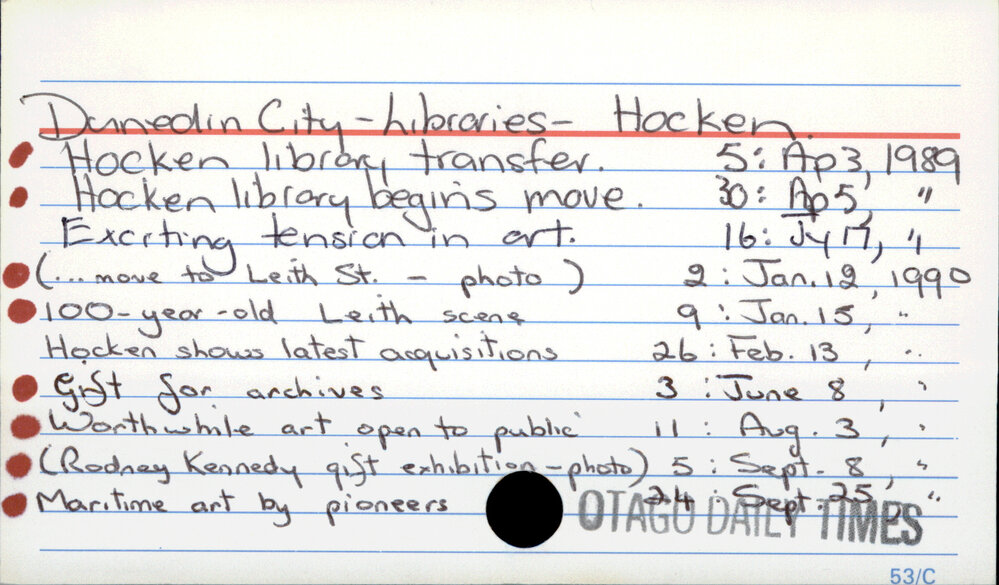 Dunedin City - Libraries - Hocken.
Hocken library transfer. 5: Ap 3, 1989
Hocken library begins move. 30: Ap 5, "
Exciting tension in art. 16: Jy 17, "
(... move to Leith St. - photo) 2: Jan. 12, 1990
100-year-old Leith scene 9: Jan. 15, "
Hocken shows latest acquisitions 26: Feb. 13, "
Gift for archives 3: June 8, "
Worthwhile art open to public 11: Aug. 3, "
(Rodney Kennedy gift exhibition - photo) 5: Sept. 8, "
Maritime art by pioneers 24: Sept. 25, "
OTAGO DAILY TIMES
53/C